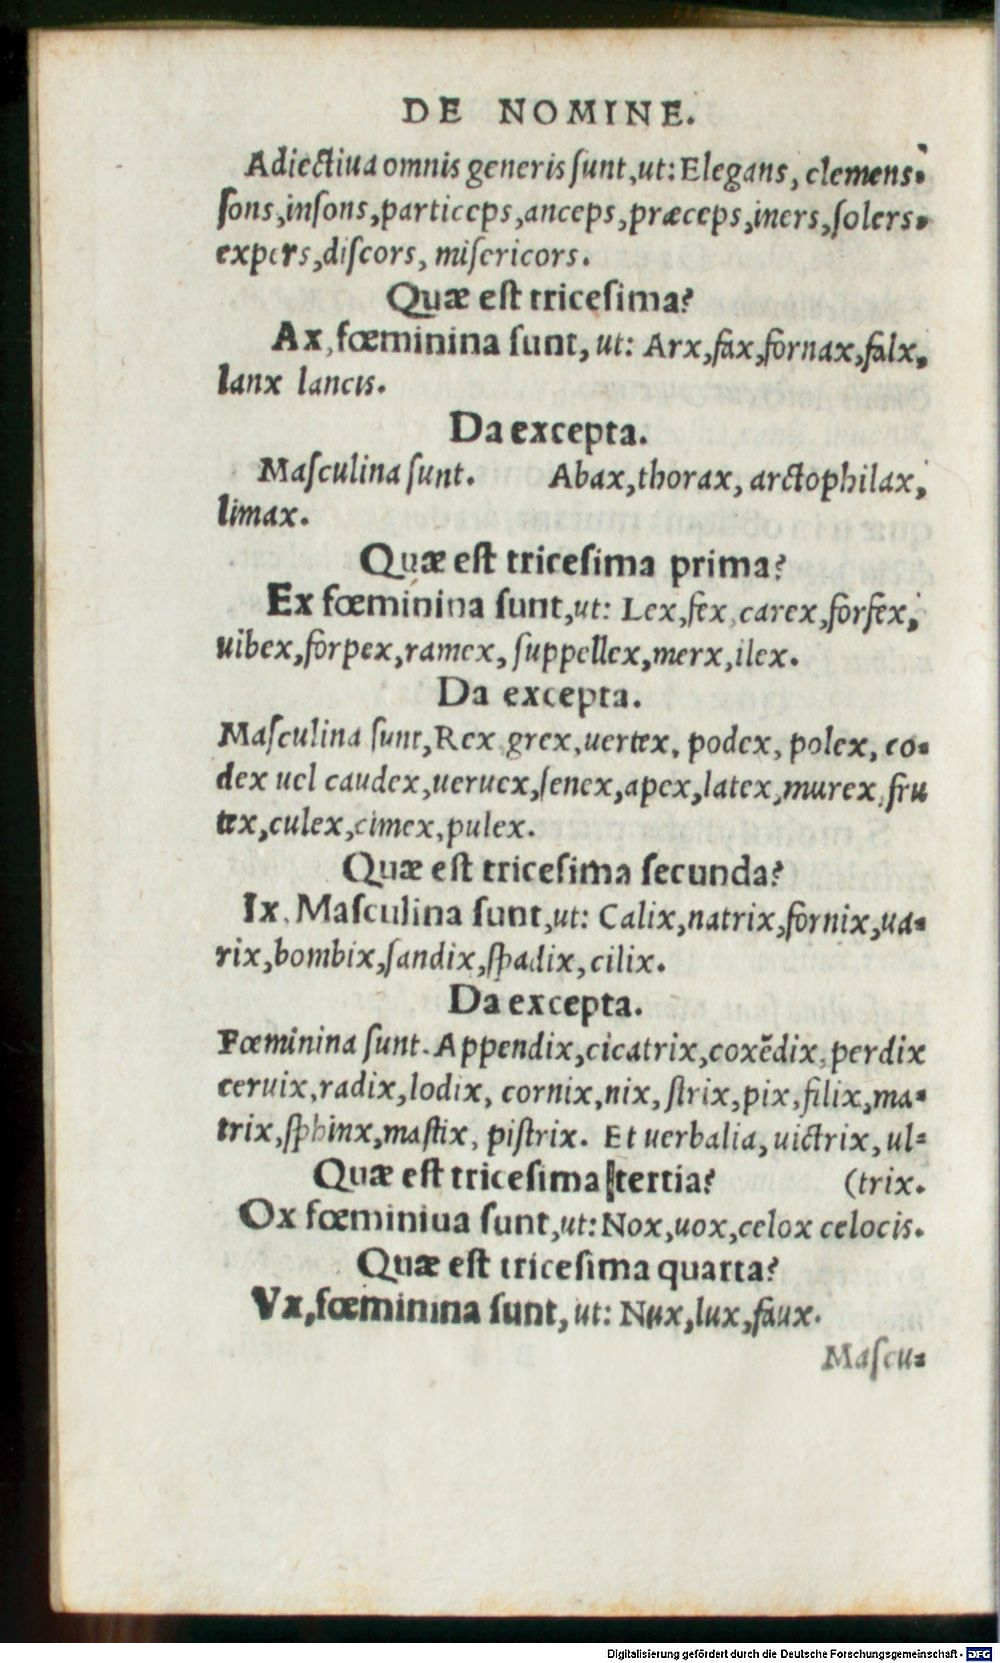 DE NOMINE.
Adiectiua omnis generis ſunt,ut: Elegans, clemens.
ſons,inſons,particeps,anceps,præceps,iners,ſolers.
expers,diſcors, miſericors.
Quæ eſt triceſima?
Ax,fœminina ſunt, ut: Arx,fax,fornax,falx,
lanx lancis.
Da excepta.
Maſculina ſunt. Abax,thorax, arctophilax,
limax.
Quæ eſt triceſima prima?
Ex fœminina ſunt,ut: Lex,fex,carex,forfex,
uibex,forpex,ramex, ſuppellex,merx,ilex.
Da excepta.
Maſculina ſunt,Rex grex,uertex, podex, polex, co-
dex uel caudex,ueruex,ſenex,apex,latex,murex,fru
tex,culex,cimex,pulex.
Quæ eſt triceſima ſecunda?
Ix. Maſculina ſunt,ut: Calix,natrix,fornix,ua-
rix,bombix,ſandix,ſpadix,cilix.
Da excepta.
Fœminina ſunt. Appendix,cicatrix,coxẽdix,perdix
ceruix,radix,lodix, cornix,nix, ſtrix,pix,filix,ma-
trix,ſphinx,maſtix, piſtrix. Et uerbalia, uictrix, ul-
Quæ eſt triceſima tertia? (trix.
Ox fœminiua ſunt,ut: Nox,uox,celox celocis.
Quæ eſt triceſima quarta?
Vx,fœminina ſunt, ut: Nux,lux,faux.
Maſcu-
Digitalisierung gefördert durch die Deutsche Forschungsgemeinschaft - DFG